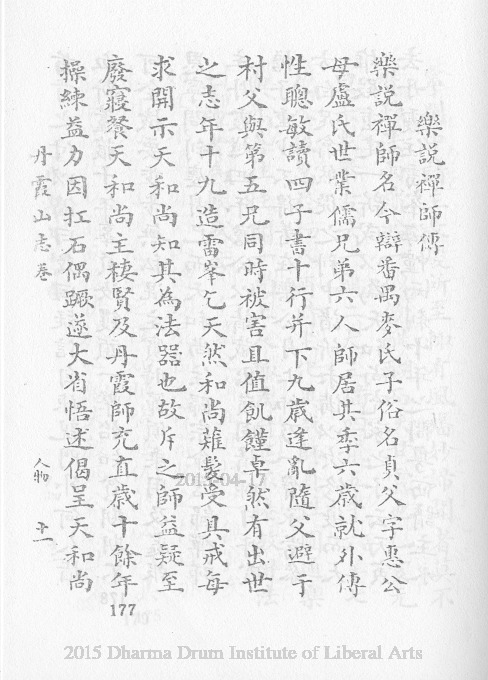 樂說禪師傳
樂說禪師名今辯番禺麥氏子俗名貞父字惠公
母盧氏世業儒兄弟六人師居其季六歲就外傅
性聰敏讀四子書十行并下九歲逢亂隨父避于
村父與第五兄同時被害且值飢饉卓然有出世
之志年十九造雷峯乞天然和尚薙髮受具戒每
求開示天和尚知其為法器也故斥之師益疑至
廢寢餐天和尚主棲賢及丹霞師充直歲十餘年
操練益力因扛石偶蹶遂大省悟述偈呈天和尚
丹霞山志卷
人物
十一
177
2015-04-17
2015 Dharma Drum Institute of Liberal Arts